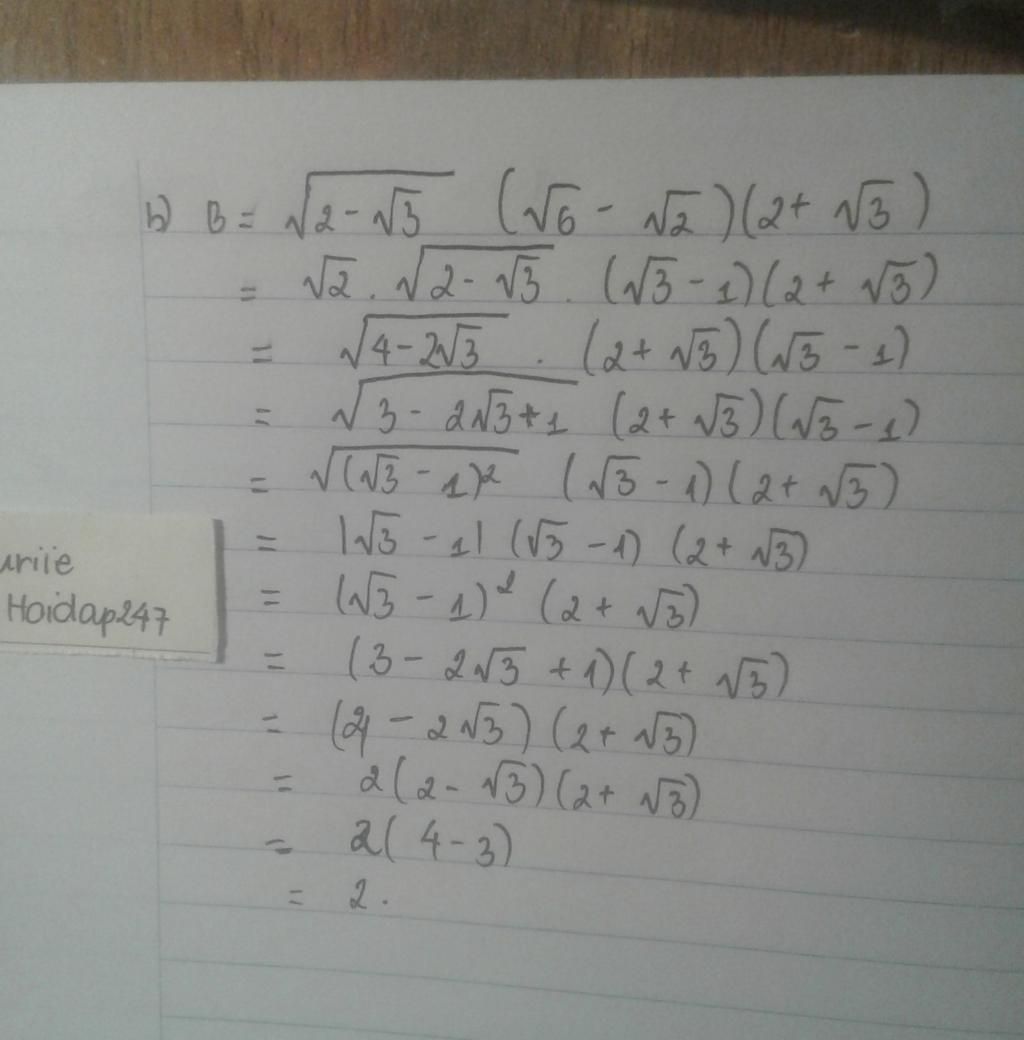 b) B = √(2 - √3) (√6 - √2)(2 + √3)
= √2 . √(2 - √3) . (√3 - 1)(2 + √3)
= √(4 - 2√3) . (2 + √3)(√3 - 1)
= √(3 - 2√3 + 1) (2 + √3)(√3 - 1)
= √((√3 - 1)²) (√3 - 1)(2 + √3)
= |√3 - 1| (√3 - 1) (2 + √3)
= (√3 - 1)² (2 + √3)
= (3 - 2√3 + 1)(2 + √3)
= (4 - 2√3) (2 + √3)
= 2(2 - √3)(2 + √3)
= 2(4 - 3)
= 2.
Hoidap247